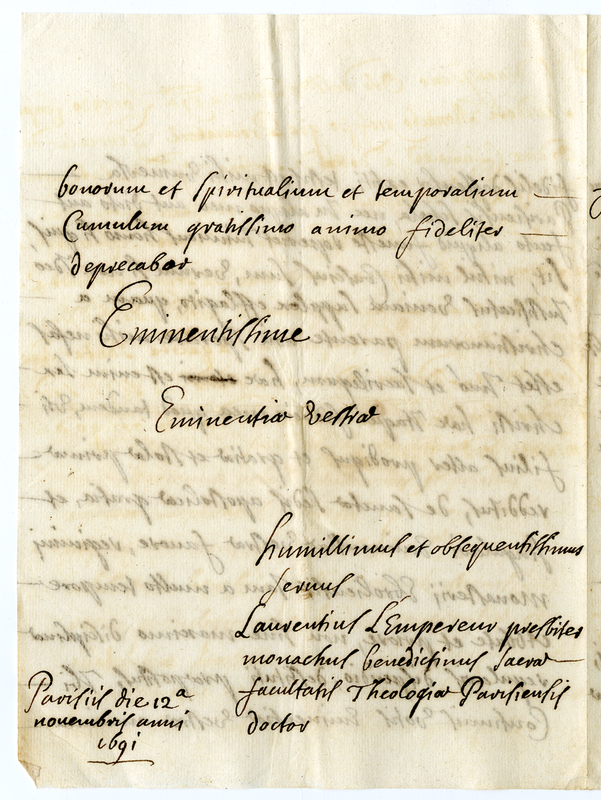 bonorum et spiritualium et temporalium
Cumulum gratissimo animo fideliter
deprecabor
Eminentissime
Eminentiæ Vestræ
humillimus et obsequentissimus
servus
Laurentius L'Empereur presbiter
monachus benedictinus sacræ
facultatis Theologiæ Parisiensis
doctor
Parisiis die 12ª
novembris anni
1691